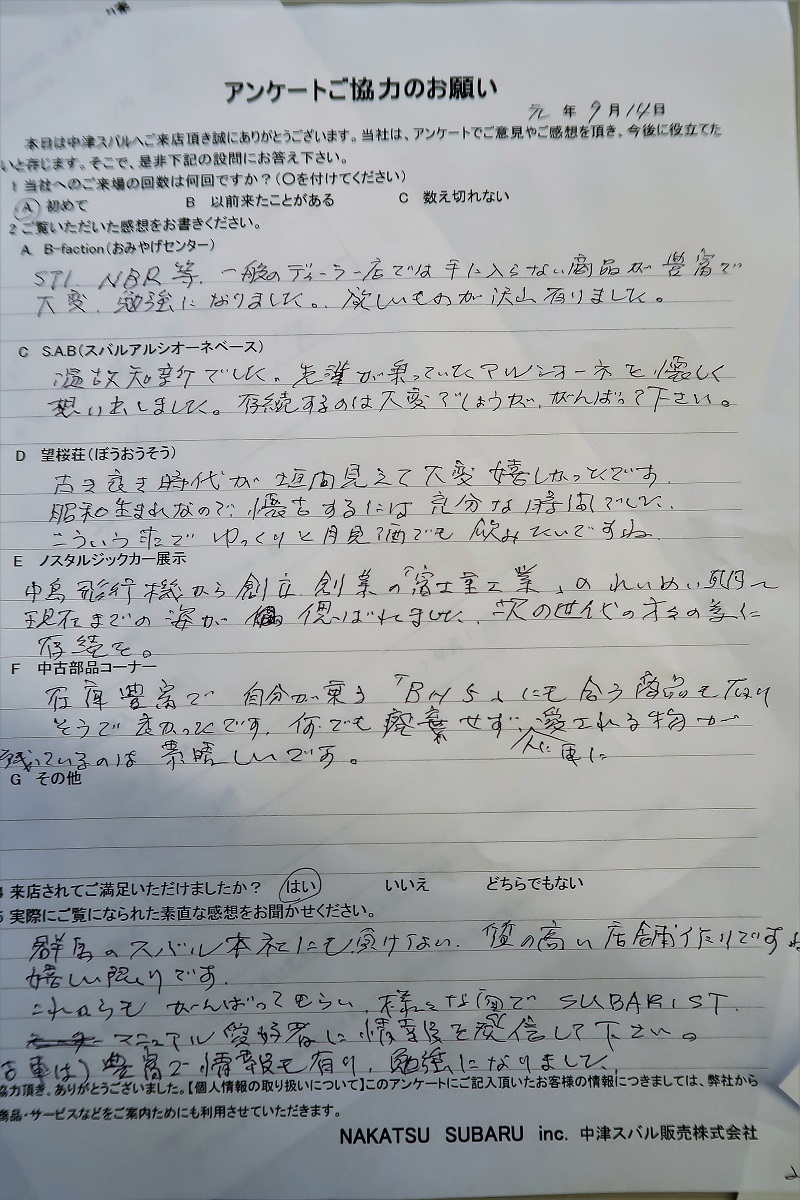 アンケートご協力のお願い
元 年 9 月 14 日
本日は中津スバルへご来店頂き誠にありがとうございます。当社は、アンケートでご意見やご感想を頂き、今後に役立てた
いと存じます。そこで、是非下記の設問にお答え下さい。
1 当社へのご来場の回数は何回ですか?(〇を付けてください)
A 初めて B 以前来たことがある C 数え切れない
2 ご覧いただいた感想をお書きください。
A B-faction(おみやげセンター)
STI NBR等、一般のディーラー店では手に入らない商品が豊富で
大変、勉強になりました。欲しいものが沢山有りました。
C S.A.B(スバルアルシオーネベース)
温故知新でした。先輩が乗っていたアルシオーネを懐しく
想い出しました。存続するのは大変でしょうが、がんばって下さい。
D 望桜荘(ぼうおうそう)
古き良き時代が垣間見えて大変嬉しかったです。
昭和生まれなので、懐古するには充分な時間でした。
こういう所で ゆっくりと月見酒でも飲みたいですね。
E ノスタルジックカー展示
中島飛行機から創立 創業の「富士重工業」のれいめい期〜
現在までの姿が 偲ばれました。次の世代の方々の為に
存続を。
F 中古部品コーナー
在庫豊富で 自分が乗る「BH5」にも合う商品も有り
そうで良かったです。何でも廃棄せず、愛される物が
人に 車に
残っているのは素晴しいです。
G その他
4 来店されてご満足いただけましたか? はい いいえ どちらでもない
5 実際にご覧になられた素直な感想をお聞かせください。
群馬のスバル本社にも負けない、質の高い店舗作りですね
嬉しい限りです。
これからも がんばってもらい、様々な面で SUBARIST
マニュアル愛好者に情報を発信して下さい。
豊富で情報も有り、勉強になりました。
協力頂き、ありがとうございました。【個人情報の取り扱いについて】このアンケートにご記入頂いたお客様の情報につきましては、弊社から
商品・サービスなどをご案内ためにも利用させていただきます。
NAKATSU SUBARU inc. 中津スバル販売株式会社